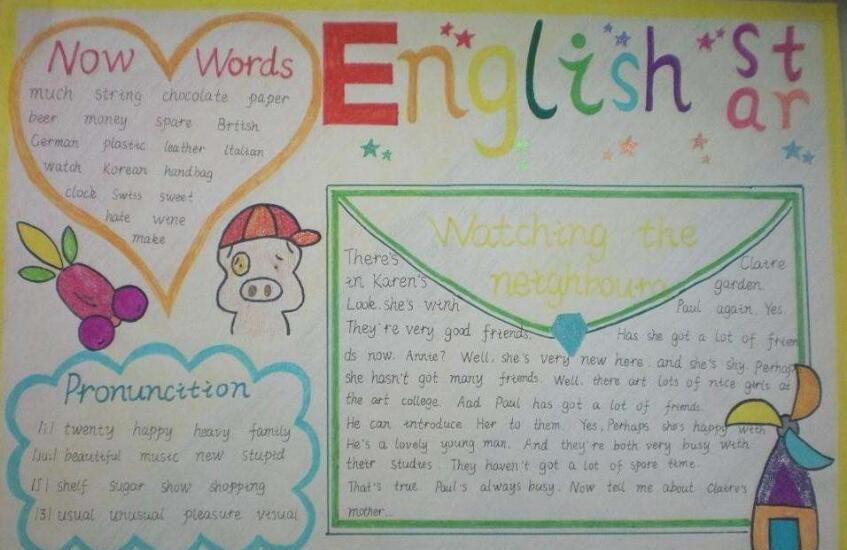 English Star
Now Words
much string chocolate paper
beer money spare Brtish
German plastic leather Italian
watch Korean handbag
clock Swiss sweet
hate wine
make
Pronunction
|i| twenty happy heavy family
|ju:| beautiful music new stupid
|ʃ| shelf sugar show shopping
|ʒ| usual unusual pleasure visual
Watching the
neighbours
There's Claire
in Karen's garden.
Look. she's with Paul again. Yes.
They're very good friends. Has she got a lot of frien
ds now. Annie? Well, she's very new here and she's shy. Perhaps
she hasn't got many friends. Well, there art lots of nice girls at
the art college. Aad Paul has got a lot of friends.
He can introduce Her to them. Yes, Perhaps she's happy with
He's a lovely young man. And they're both very busy with
their studies. They haven't got a lot of spare time.
That's true. Paul's always busy. Now tell me about Claire's
mother...